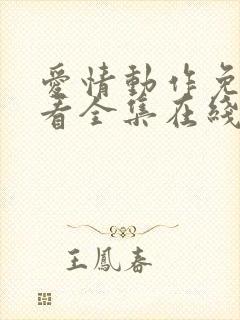 愛情動作免
看全集在綫
王鳳春